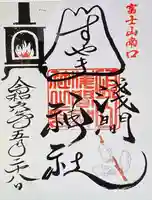 富士山南口
すやま
淺間
神社
令和年五月二十八日